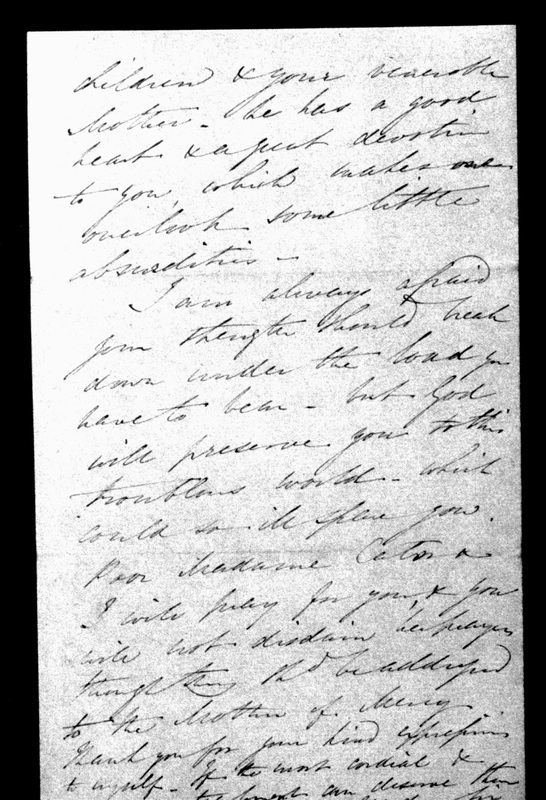 children & your venerable
Mother - he has a good
heart & a great devotion
to you, which makes one
overlook some little
absurdities -
I am always afraid
your strength should break
down under the load you
have to bear - but God
will preserve you to this
troublous world - which
could so ill spare you.
Poor Madame Cator &
I will pray for you, & you
will not disdain her prayers
though they shd be addressed
to the Mother of Mercy
Thank you for your kind expressions
to myself - If the most cordial &
can deserve them